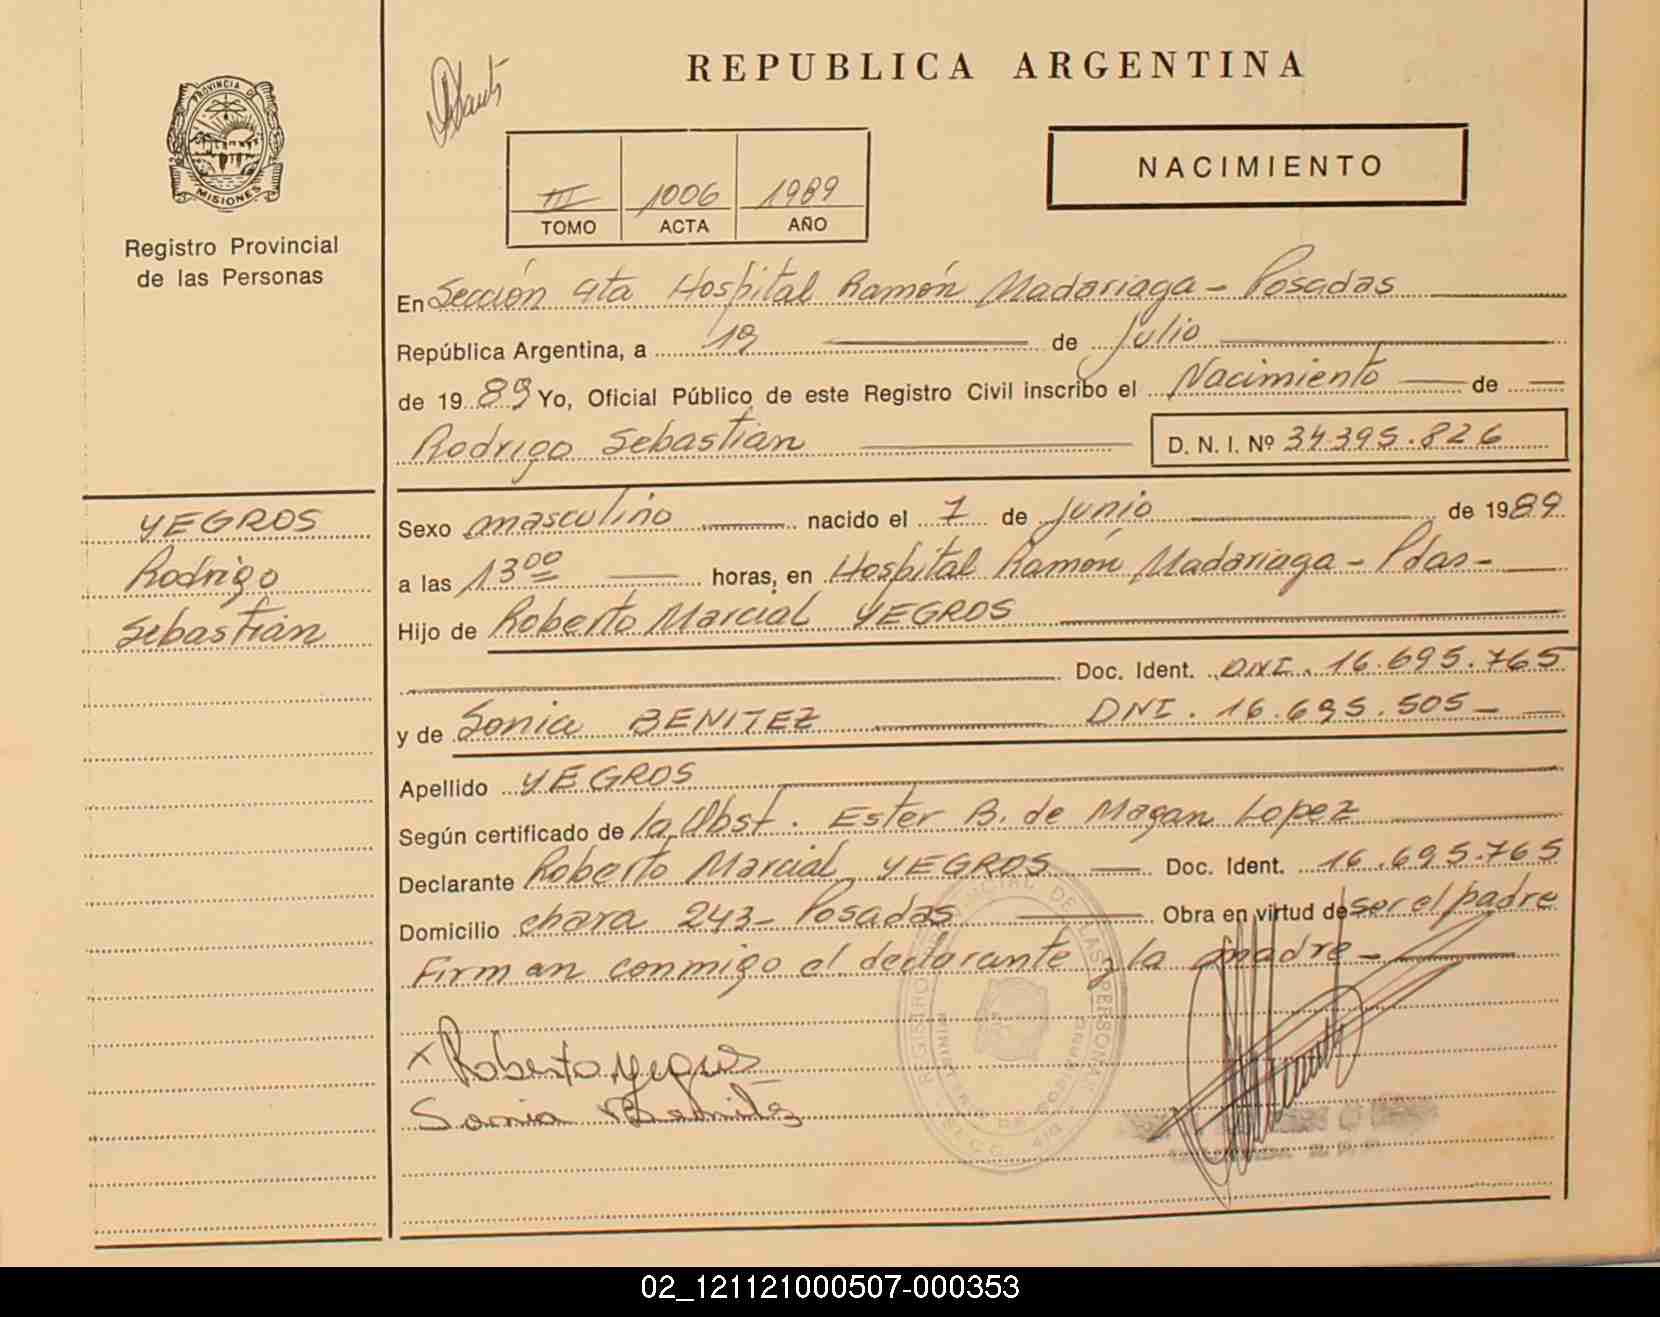 REPUBLICA ARGENTINA
PROVINCIA DE
MISIONES
Registro Provincial
de las Personas
NACIMIENTO
III 1006 1989
TOMO ACTA AÑO
En Sección 4ta Hospital Ramón Madariaga - Posadas
República Argentina, a 19 de Julio
de 1989 Yo, Oficial Público de este Registro Civil inscribo el Nacimiento de
Rodrigo Sebastián D. N. I. Nº 34.395.826
YEGROS
Rodrigo
Sebastián
Sexo masculino nacido el 7 de Junio de 1989
a las 13 00 horas, en Hospital Ramón Madariaga - Pdas -
Hijo de Roberto Marcial YEGROS
Doc. Ident. DNI. 16.695.765
y de Sonia BENITEZ DNI. 16.695.505 -
Apellido YEGROS
Según certificado de la Obst. Ester B. de Magan Lopez
Declarante Roberto Marcial YEGROS Doc. Ident. 16.695.765
Domicilio chara 243 - Posadas Obra en virtud de ser el padre
Firman conmigo el declarante y la madre -
x Roberto Yegros
Sonia Benitez
02_121121000507-000353